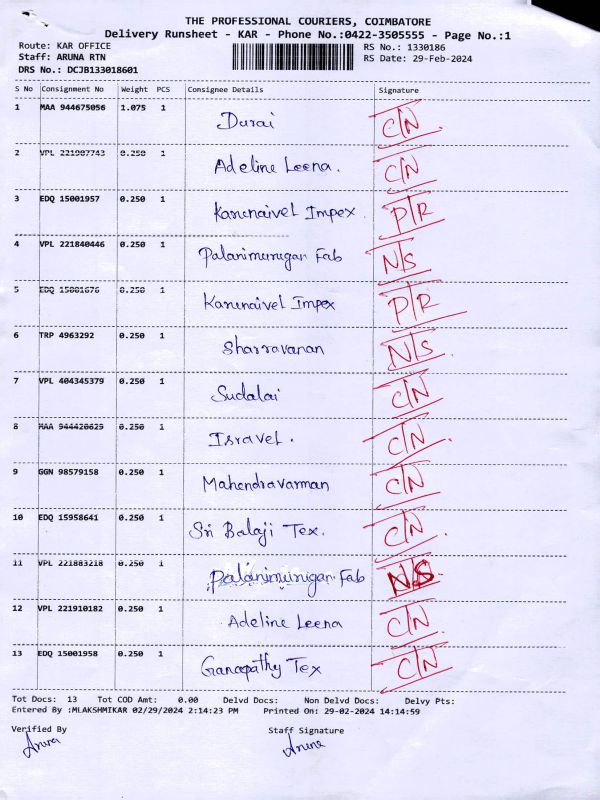 THE PROFESSIONAL COURIERS, COIMBATORE
Delivery Runsheet - KAR - Phone No.:0422-3505555 - Page No.:1
Route: KAR OFFICE RS No.: 1330186
Staff: ARUNA RTN RS Date: 29-Feb-2024
DRS No.: DCJB133018601
S No Consignment No Weight PCS Consignee Details Signature
1 MAA 944675056 1.075 1 Durai C/N
2 VPL 221907743 0.250 1 Adeline Leena. C/N
3 EDQ 15001957 0.250 1 Karunaivel Impex P/R
4 VPL 221840446 0.250 1 Palanimurugan Fab N/S
5 EDQ 15001676 0.250 1 Karunaivel Impex P/R
6 TRP 4963292 0.250 1 Sharravanan N/S
7 VPL 404345379 0.250 1 Sudalai C/N
8 MAA 944420629 0.250 1 Isravel. C/N
9 GGN 98579158 0.250 1 Mahendravarman C/N
10 EDQ 15958641 0.250 1 Sri Balaji Tex. C/N
11 VPL 221883218 0.250 1 Palanimurugan Fab N/S
12 VPL 221910182 0.250 1 Adeline Leena C/N
13 EDQ 15001958 0.250 1 Ganapathy Tex C/N
Tot Docs: 13 Tot COD Amt: 0.00 Delvd Docs: Non Delvd Docs: Delvy Pts:
Entered By :MLAKSHMIKAR 02/29/2024 2:14:23 PM Printed On: 29-02-2024 14:14:59
Verified By Staff Signature
Aruna Aruna